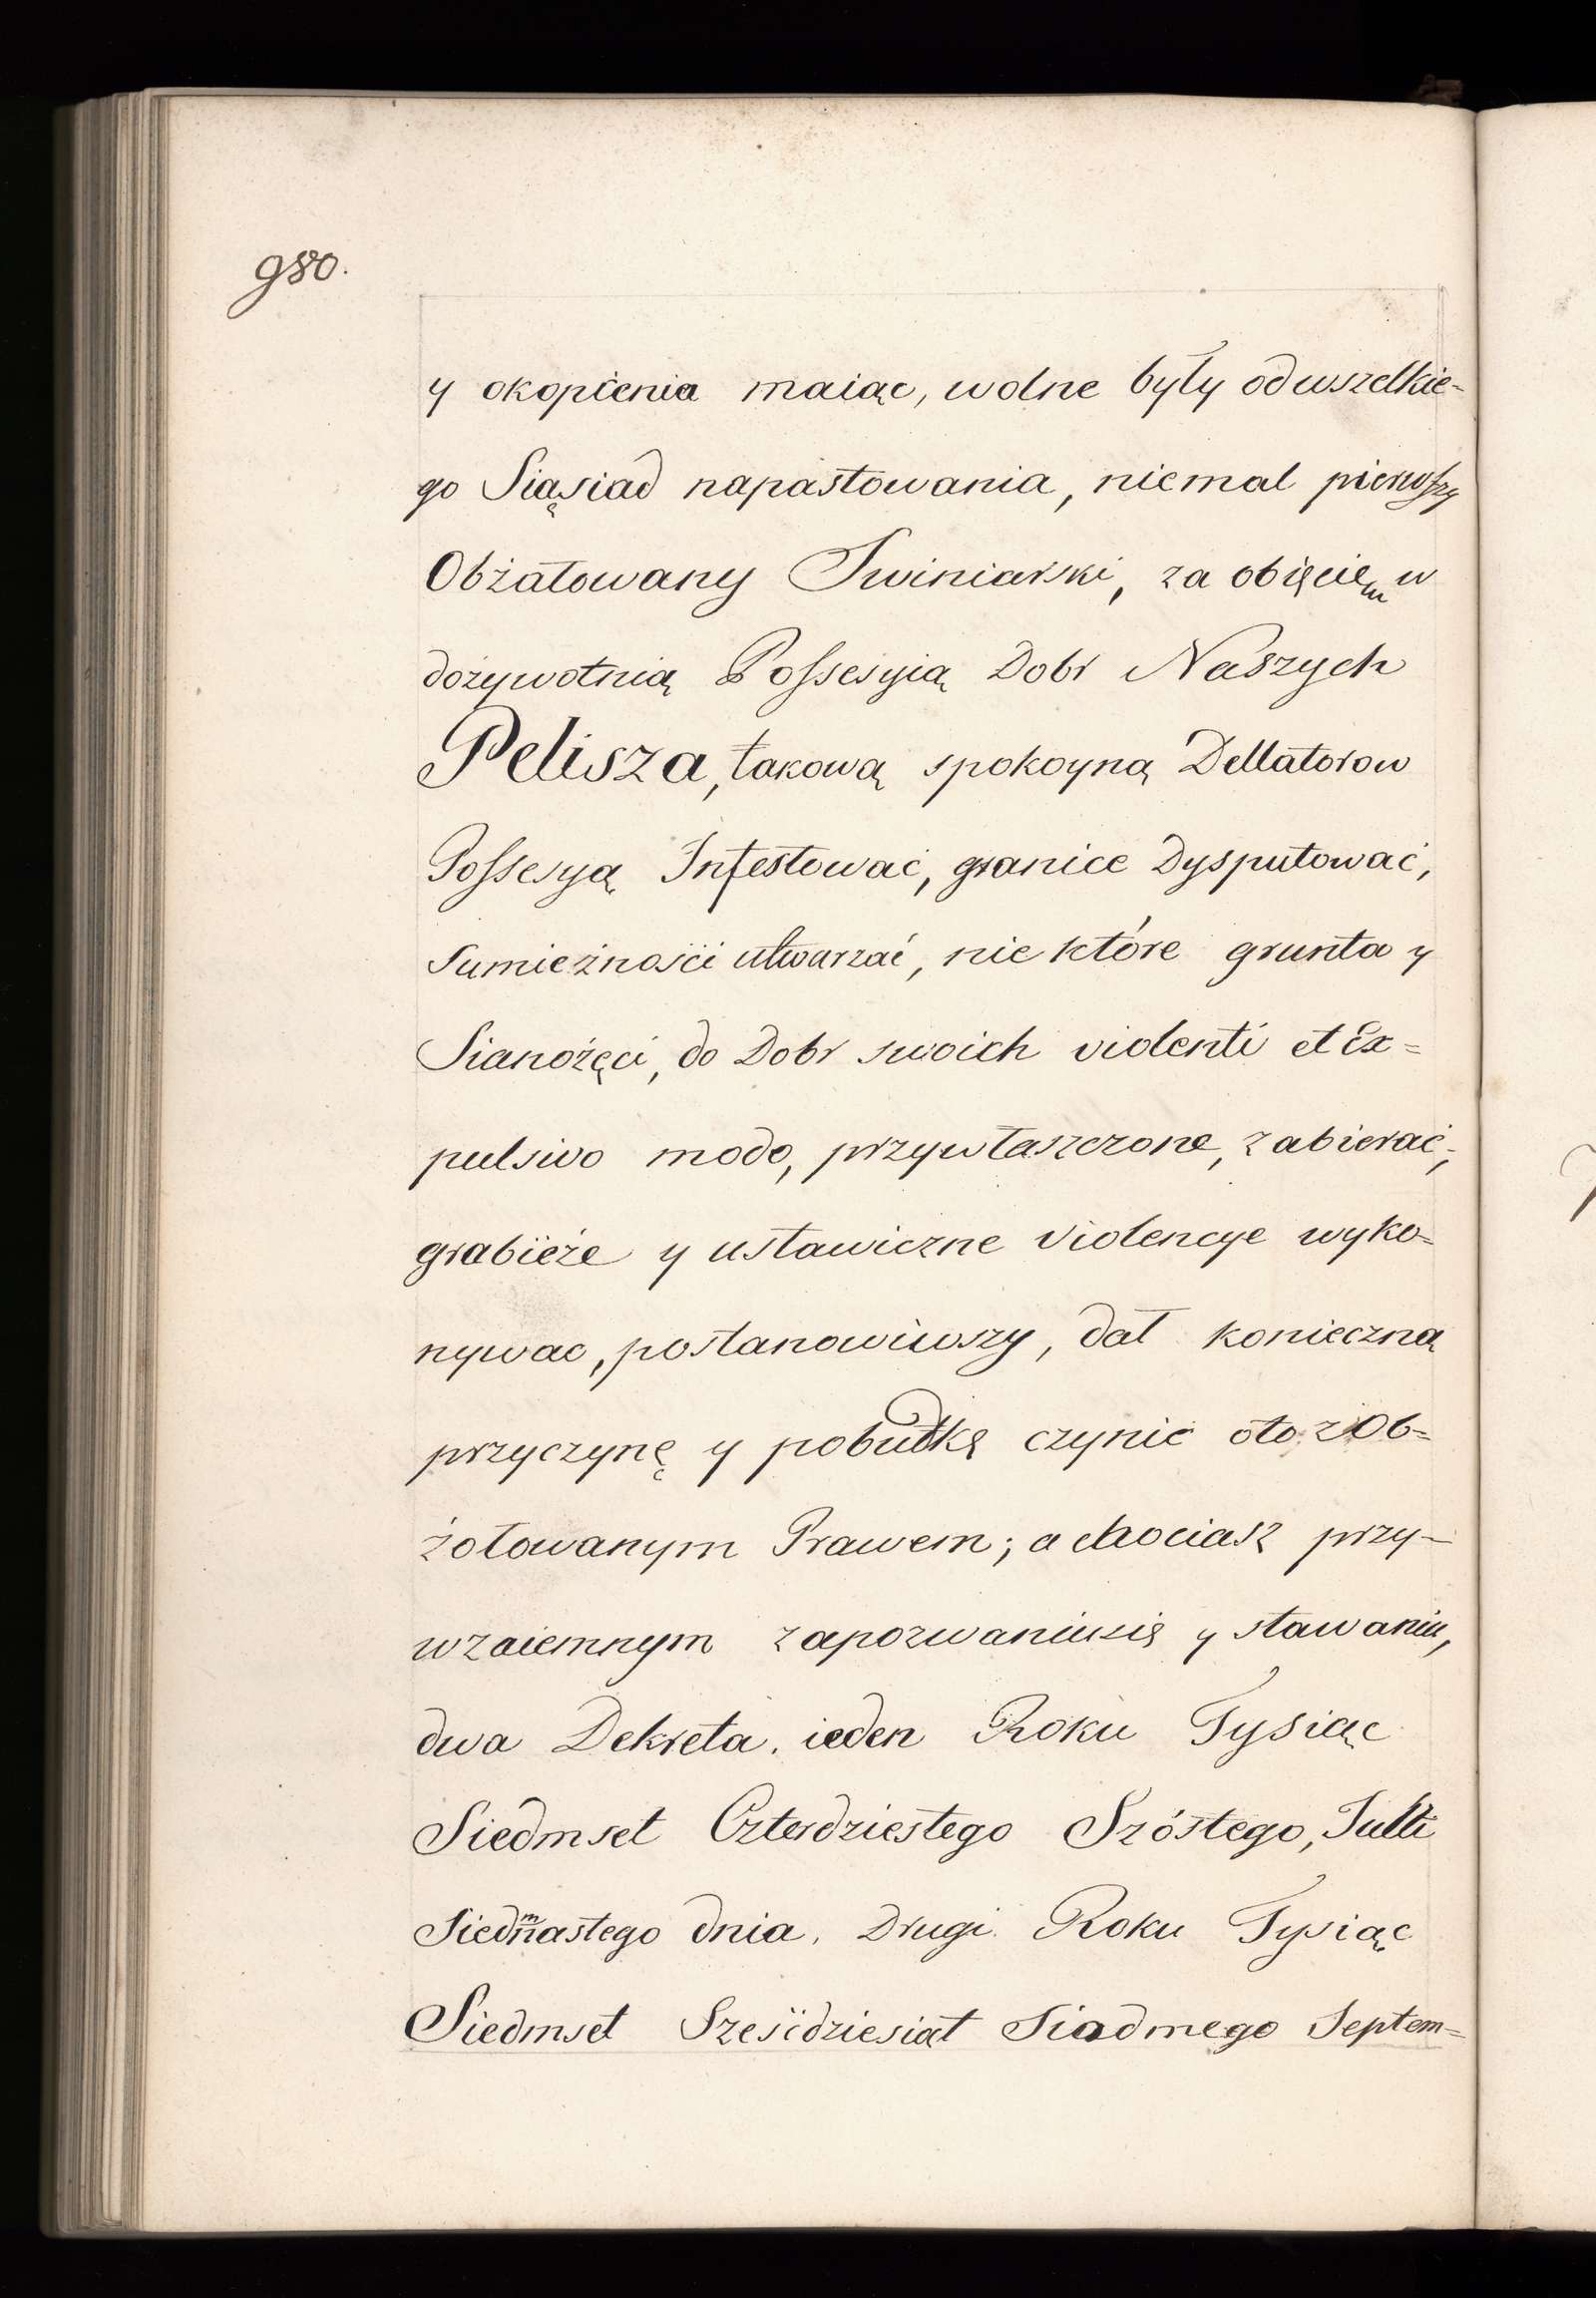 980.
y okopienia maiąc, wolne były od wszelkie-
go Siąsiad napastowania, niemal pierwszy
Obżałowany Swiniarski, za obięciem w
dożywotnią Possesyią Dobr Naszych
Pelisza, takową spokoyną Dellatorow
Possesyą Infestować, granice Dysputować,
sumieżnosći utwarzać, nie które grunta y
Sianożęci, do Dobr swoich violenti et Ex=
pulsivo modo, przywłaszczone, zabierać,
grabieże y ustawiczne violencye wyko=
nywac, postanowiwszy, dał konieczną
przyczynę y pobudkę czynić oto z Ob=
żołowanym Prawem; a chociasz przy-
wzaiemnym zapozwaniusię y stawaniu,
dwa Dekreta. ieden Roku Tysiąc
Siedmset Czterdziestego Szóstego, Julli
Siedmnastego dnia. Drugi Roku Tysiąc
Siedmset Szesćdziesiąt Siodmego Septem=